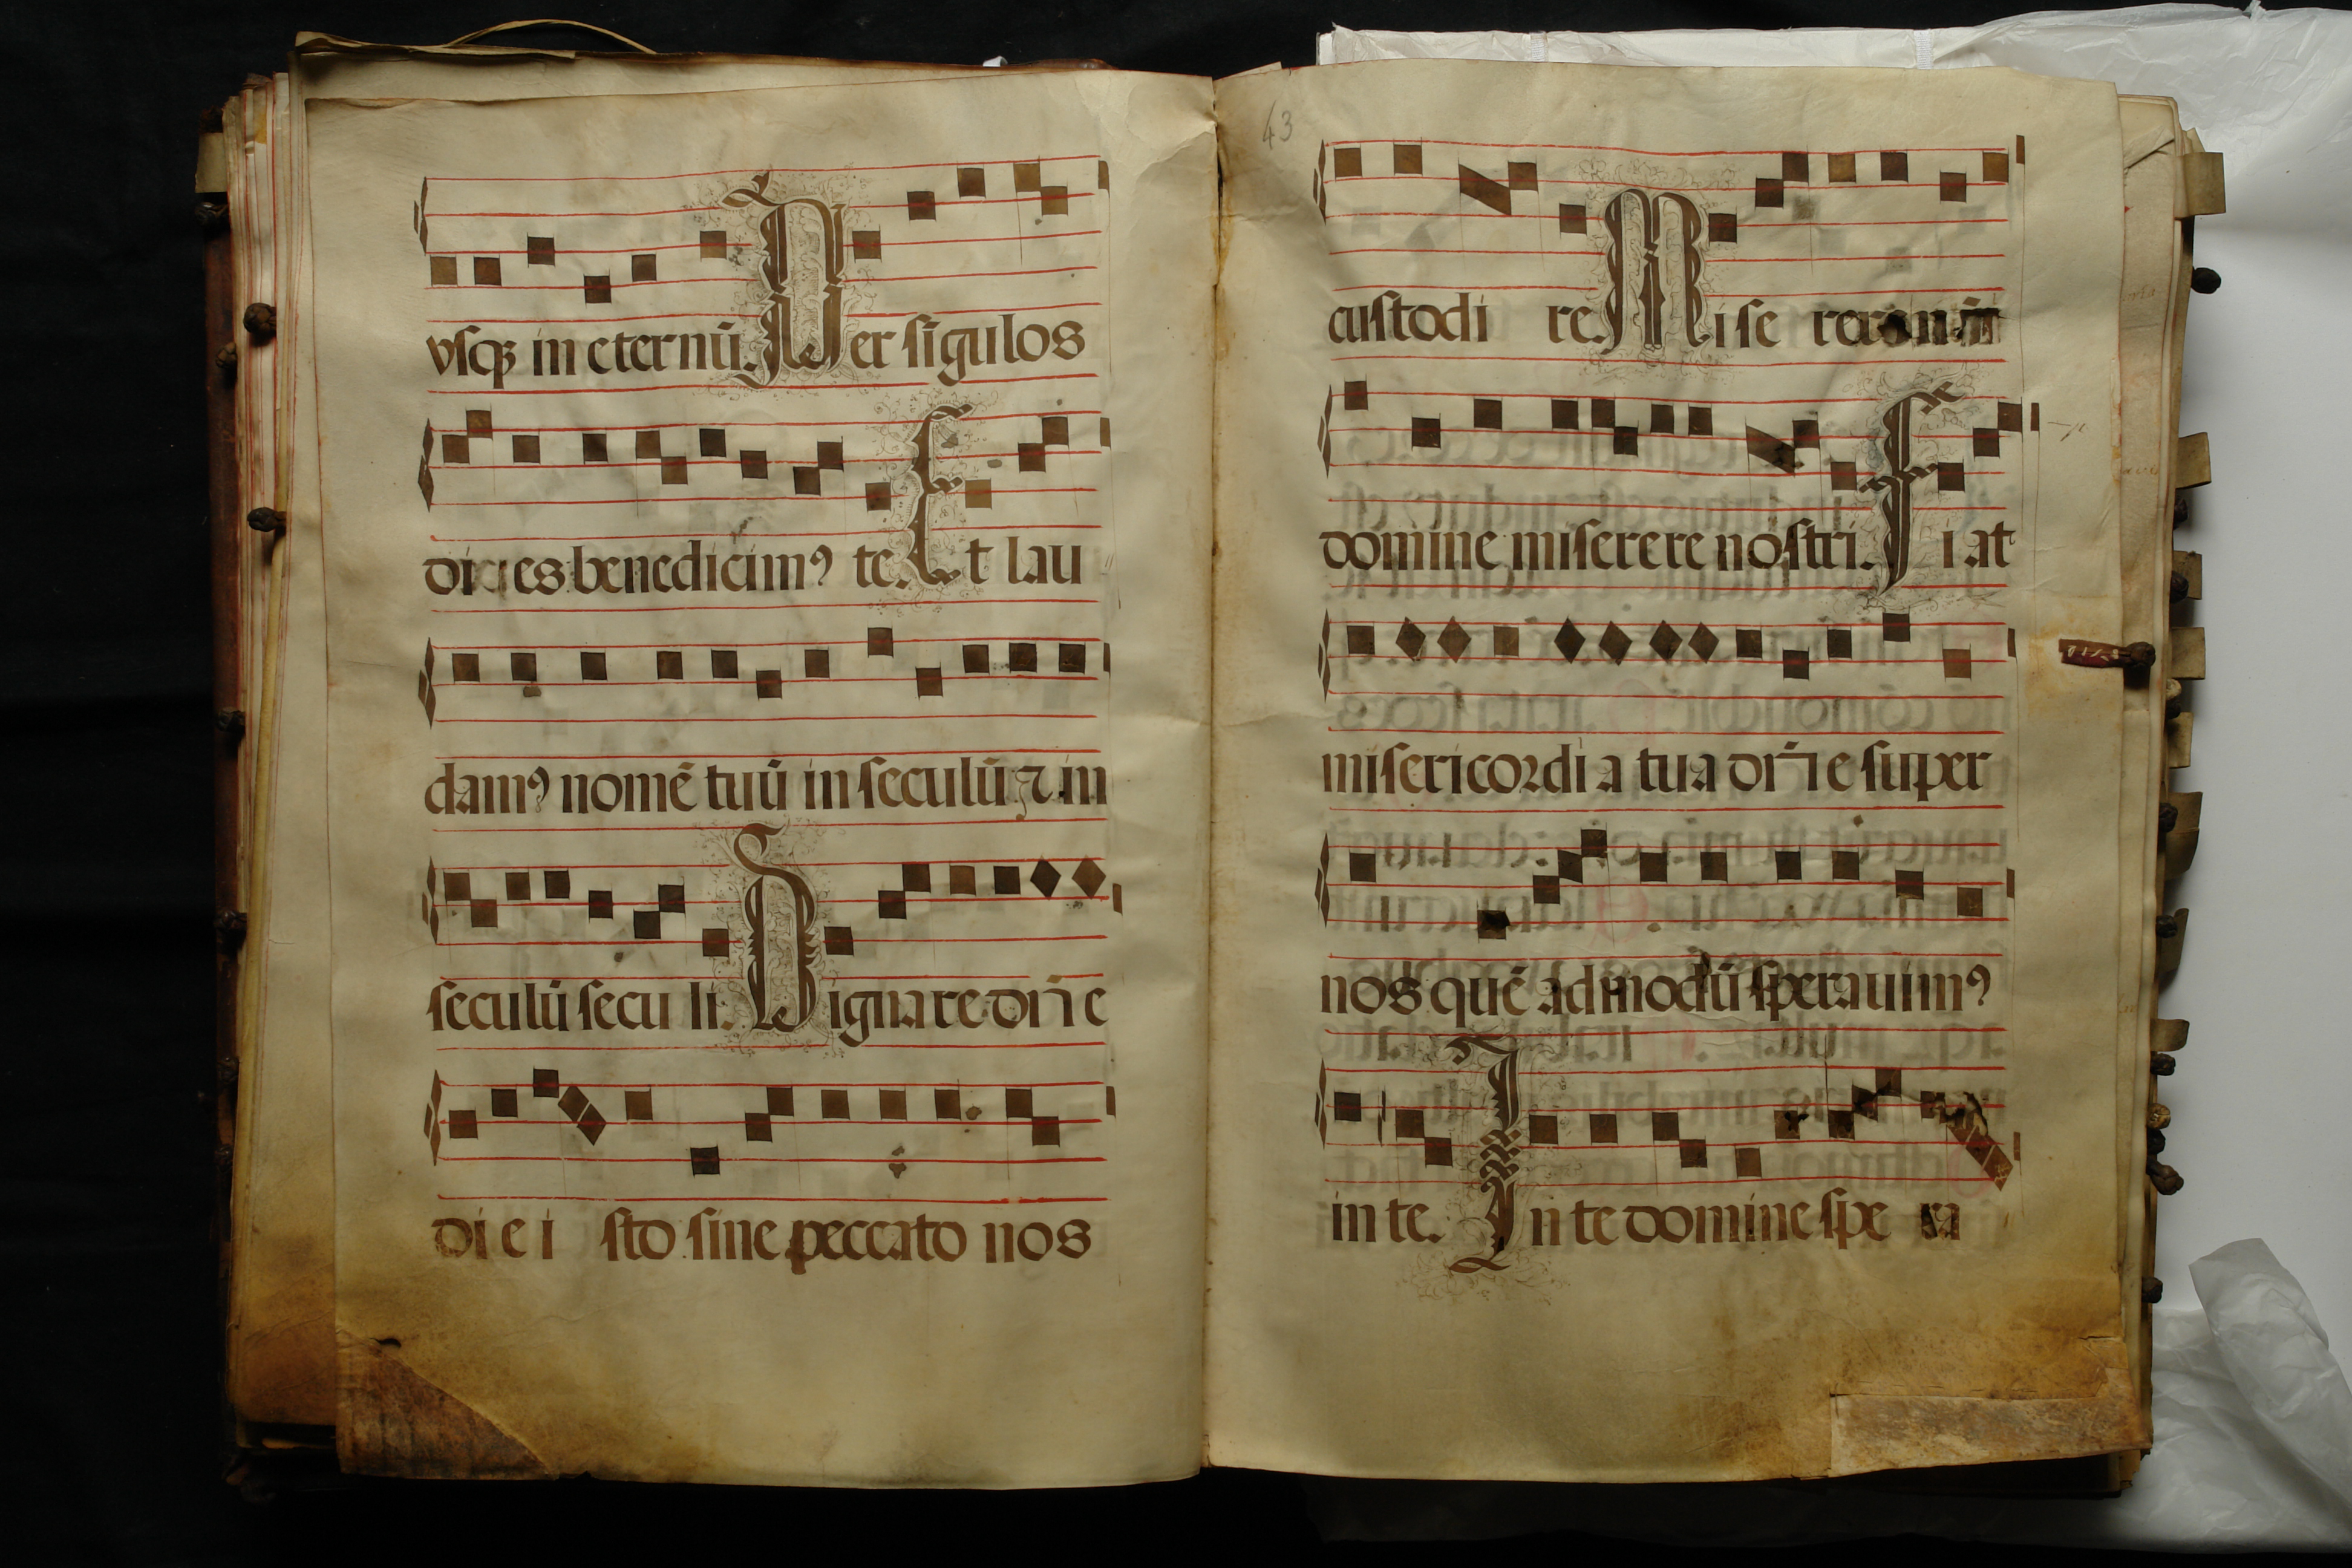 vsqʒ in eternū. Per sīgulos
dies benedicimꝰ te. Et lau
damꝰ nomē tuū in seculū ⁊ in
seculū secu li. Dignare dn̄e
die i sto sine peccato nos
43
custodi re. Mise rere
domine miserere nostri. Fi at
misericordi a tua dn̄e super
nos quē admodū sperauimꝰ
in te. In te domine spe ra